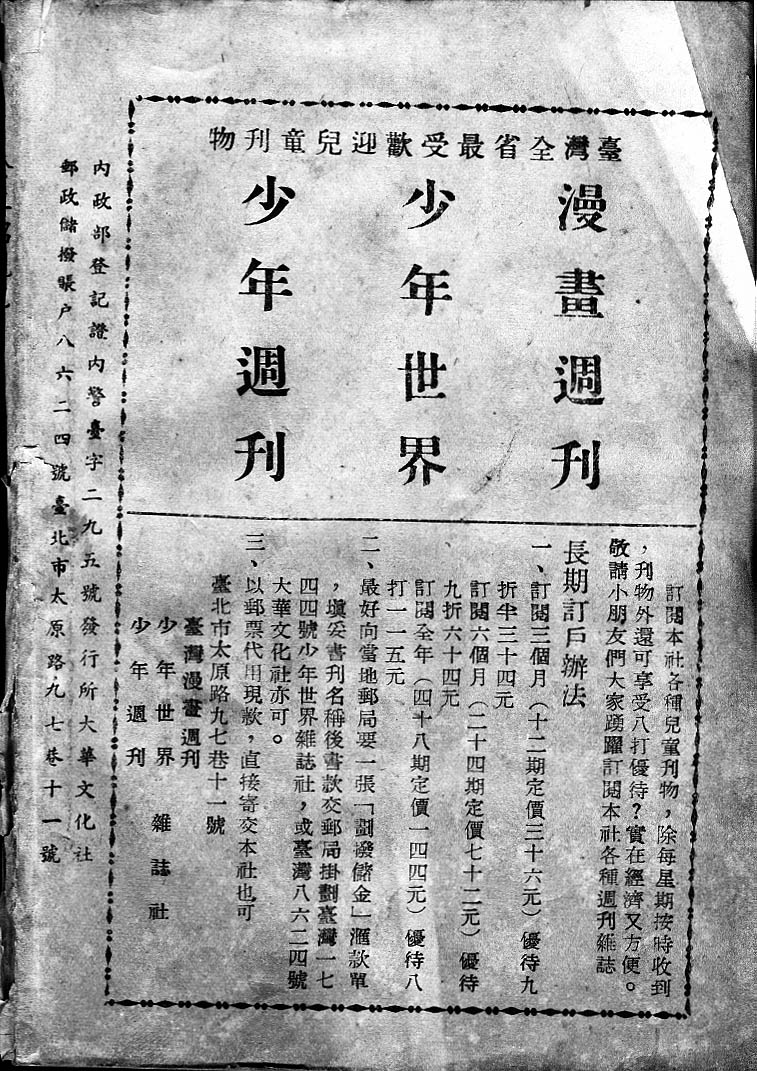 臺灣全省最受歡迎兒童刊物
漫畫週刊
少年世界
少年週刊
訂閱本社各種兒童刊物，除每星期按時收到
，刊物外還可享受八打優待？實在經濟又方便。
敬請小朋友們大家踴躍訂閱本社各種週刊雜誌
長期訂戶辦法
一、訂閱三個月（十二期定價三十六元）優待九
折半三十四元
訂閱六個月（二十四期定價七十二元）優待
九折六十四元
訂閱全年（四十八期定價一四四元）優待八
打一一五元
二、最好向當地郵局要一張「劃撥儲金」滙款單
，塡妥書刊名稱後書款交郵局掛劃臺灣一七
四四號少年世界雜誌社，或臺灣八六二四號
大華文化社亦可。
三、以郵票代用現款，直接寄交本社也可
臺北市太原路九七巷十一號
臺灣漫畫週刊
少年世界 雜誌社
少年週刊
內政部登記證內警臺字二九五號發行所大華文化社
郵政儲撥賬户八六二四號臺北市太原路九七巷十一號